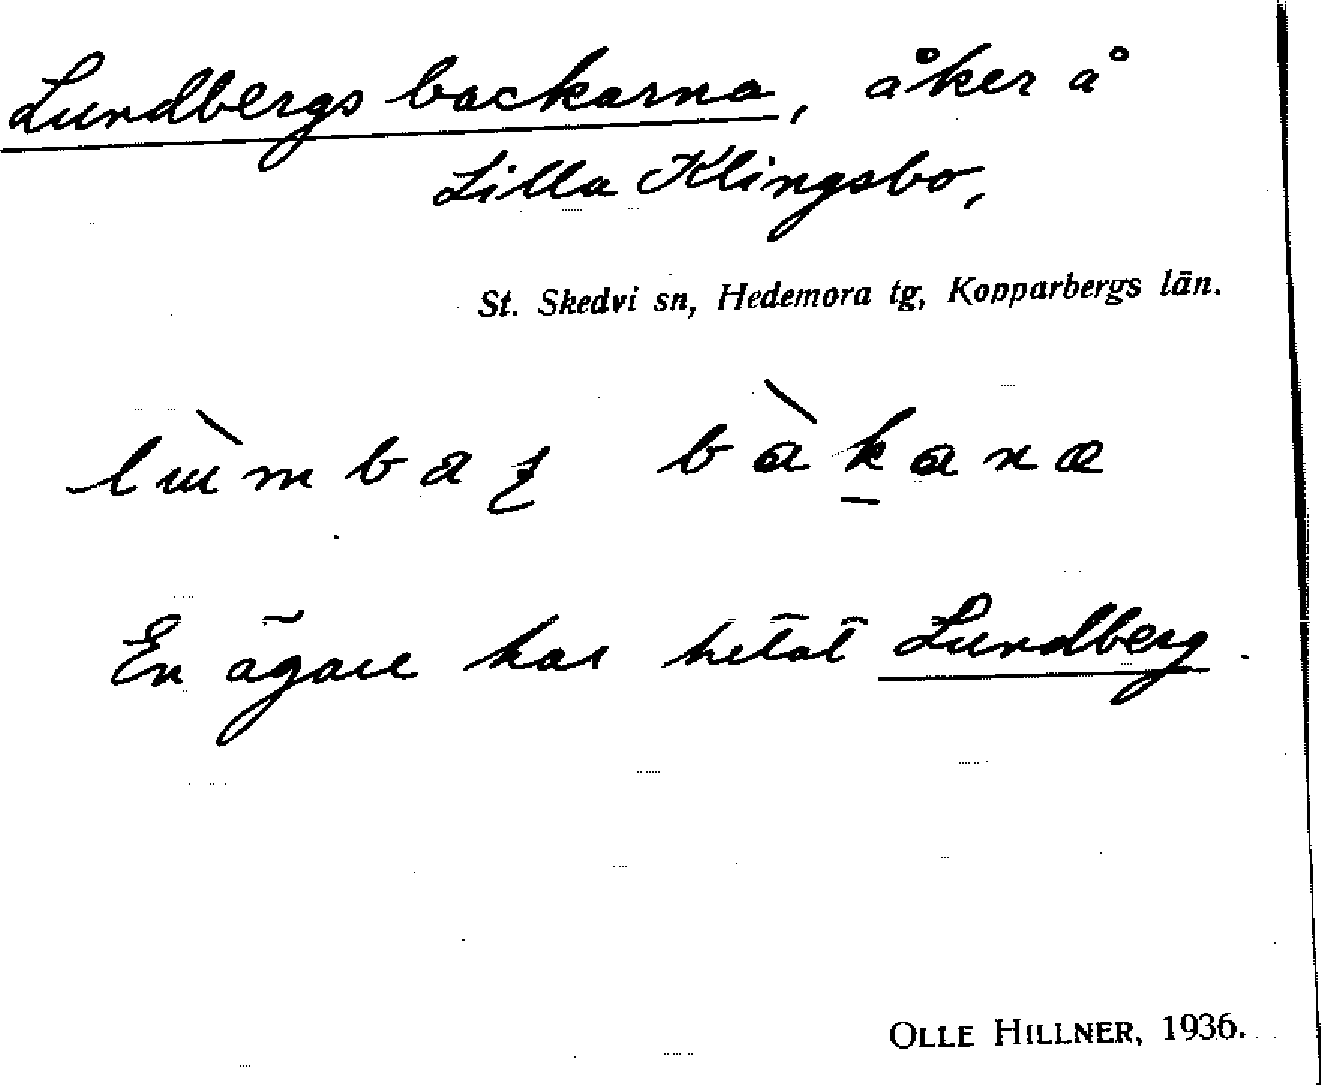 Lundbergsbackarna, åker å
Lilla Klingsbo,
St. Skedvi sn, Hedemora tg, Kopparbergs län.
En ägare har hetat Lundberg.
OLLE HILLNER, 1936.